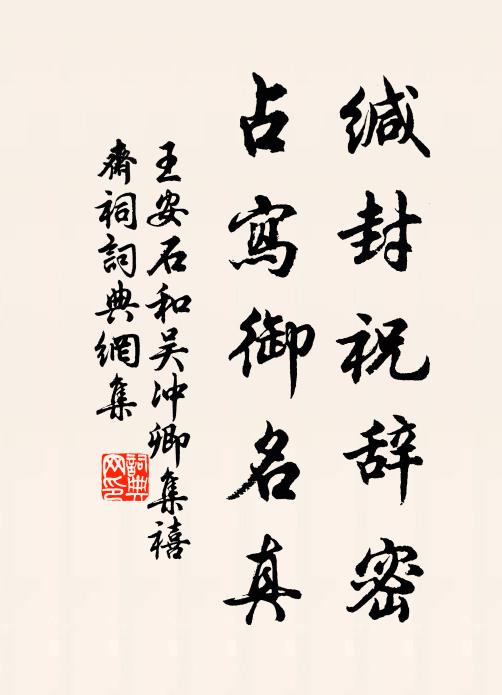 缄封祝辞密
占寫御名真
王安石和吴冲卿集禧
齋祠詞典網集
詞典网印